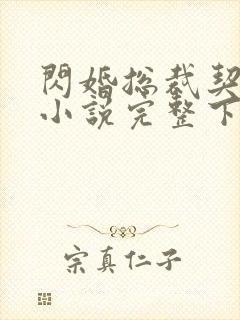 閃婚總裁契
小說完整下
宗真仁子